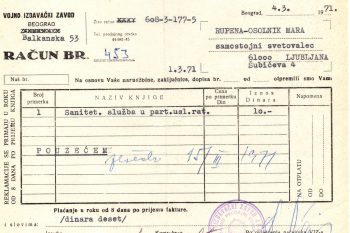 VOJNO IZDAVAČKI ZAVOD
BEOGRAD
Balkanska 53
Žiro račun 608-3-177-5
Beograd, 4.3. 1971.
RAČUN BR. 453
RUPENA-OSOLNIK MARA
samostojni svetovalec
61000 LJUBLJANA
Šubičeva 4
1.3.71
Naš br. Na osnovu Vaše narudžbine, zaključnice, dopisa br. od otpremili smo Vam:
REKLAMACIJE SE PRIMAJU U ROKU
OD 8 DANA PO PRIJEMU KNJIGA
Broj primerka
NAZIV KNJIGE
Cena po primerku Din
Iznos Dinara
Napomena
1 Sanitet. služba u part.usl.rat. lo.- lo.-
POUZEĆEM
15/III 1971
NA OTPLATU
OD
Plaćanje u roku od 8 dana po prijemu fakture.
/dinara deset/
i slovima: